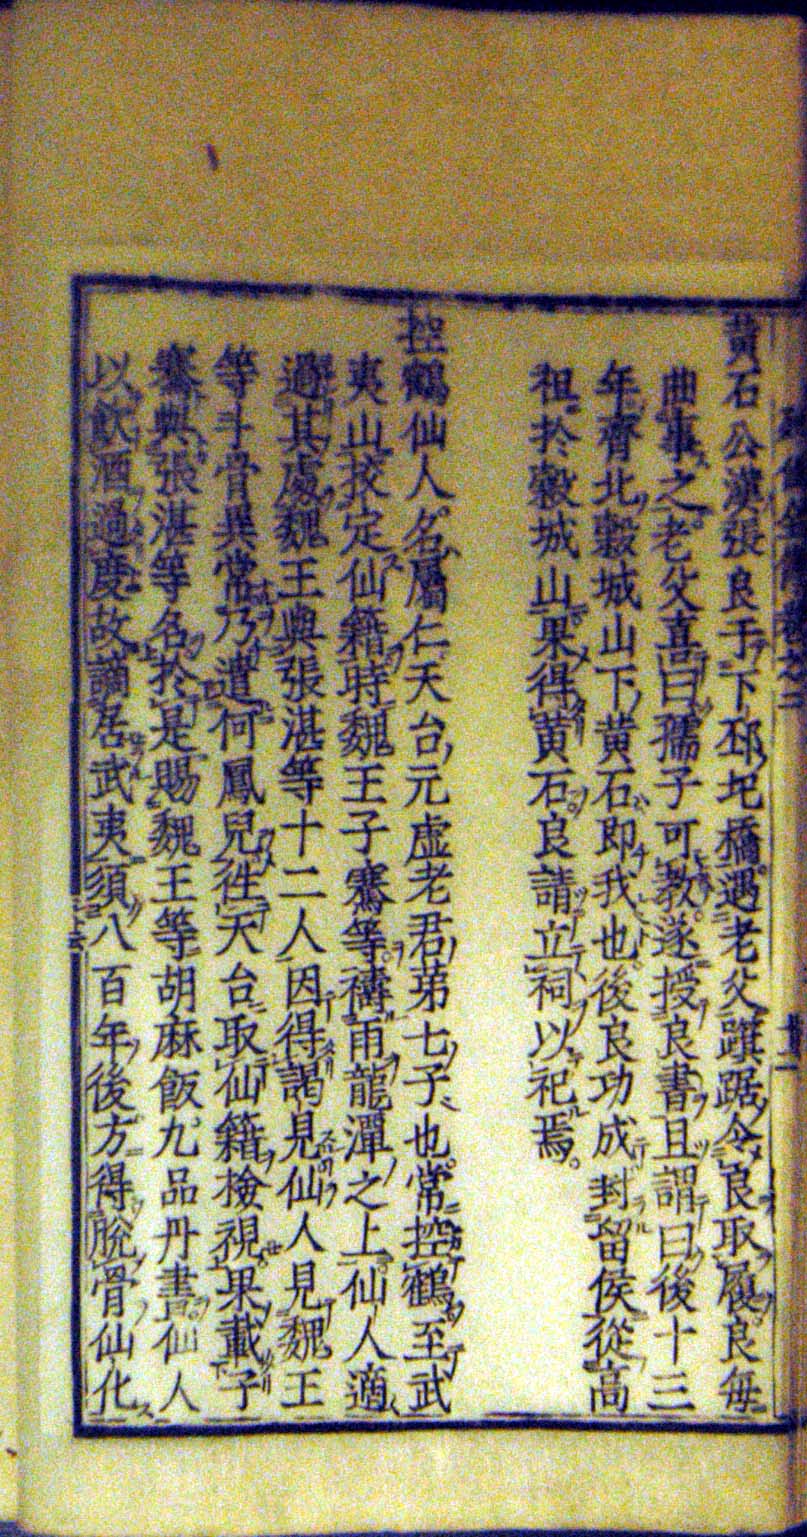 黄石公漢張良于下邳圯橋遇老父蹞踞令良取履良毎
曲事之老父直曰孺子可教遂授良書且謂曰後十三
年齊北穀城山下黄石即我也後良功成封留侯從高
祖於穀城山果得黄石良請立祠以祀焉
控鶴仙人名屬仁天台元虚老君苐七子也常控鶴至武
夷山挍定仙籍時魏王子騫等禱雨龍潭之上仙人適
過其處魏王與張湛等十二人因得謁見仙人見魏王
等斗骨異常乃遣何鳳兒徃天台取仙籍檢視果載子
騫與張湛等名於是賜魏王等胡麻飯九品丹書仙人
以飲酒過度故謫居武夷須八百年後方得脱骨仙化